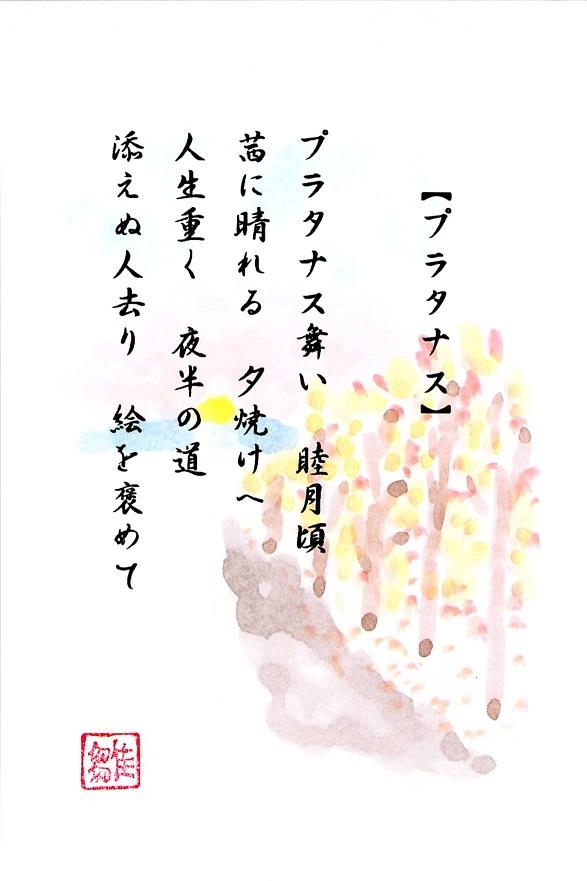 【プラタナス】
プラタナス舞い　睦月頃
茜に晴れる　夕焼けへ
人生重く　夜半の道
添えぬ人去り　絵を褒めて